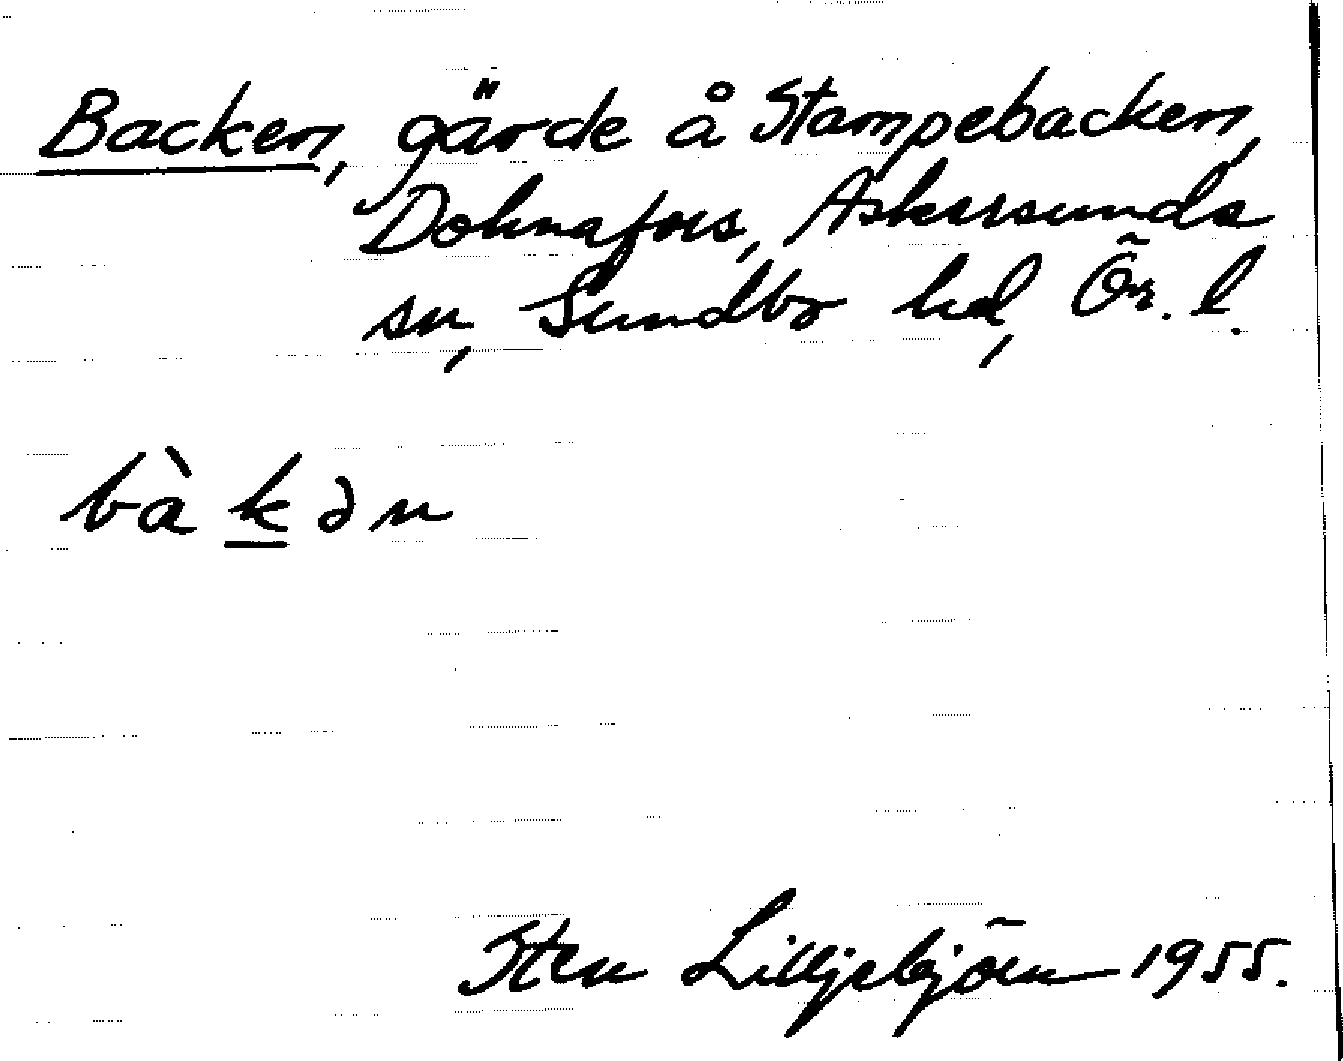 Backen, gärde å Stampebacken,
Dohnafors, Askersunds
sn, Sundbo hd, Ör. l.
bàkən
Sten Lilljebjörn 1955.